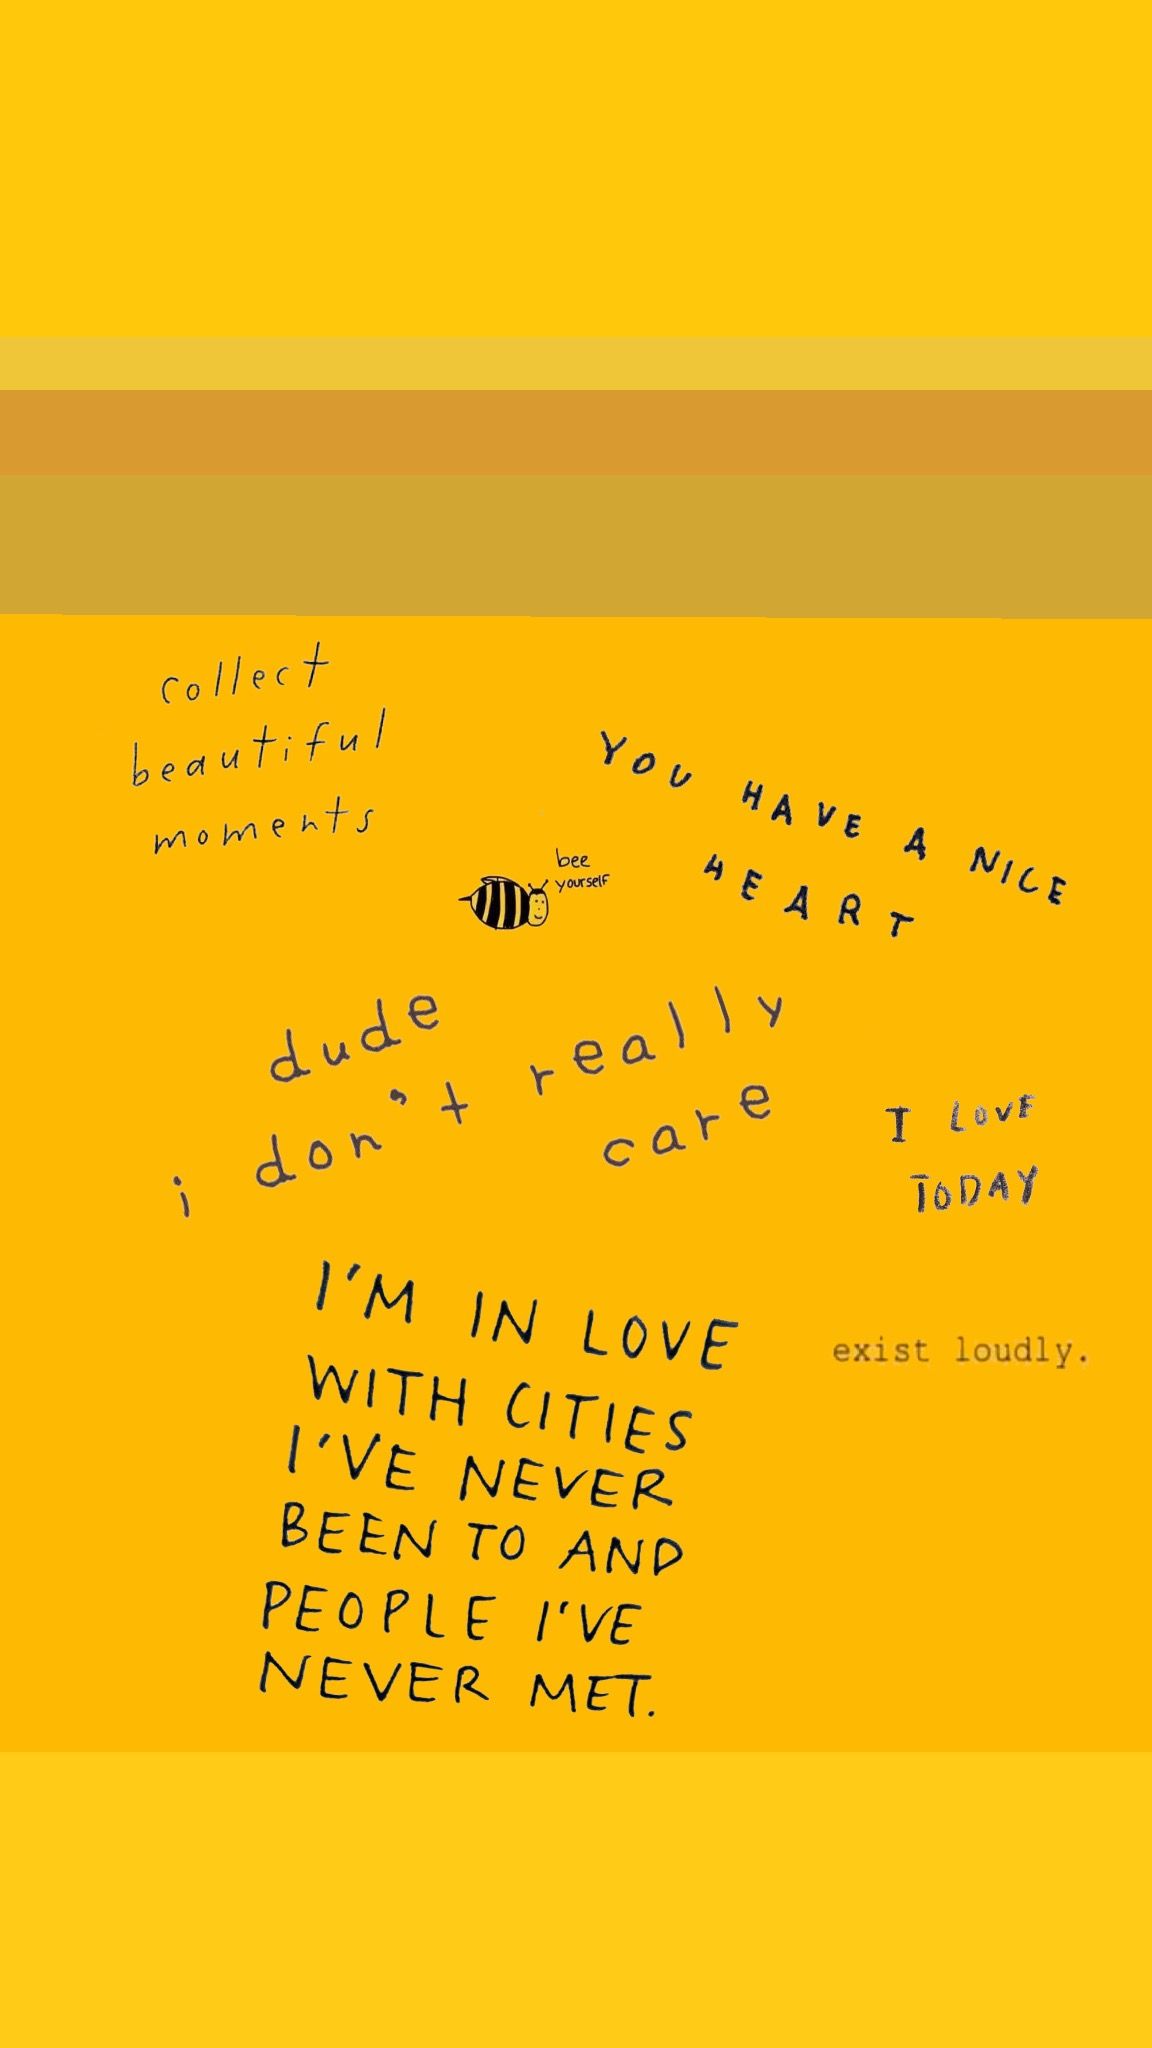 collect
beautiful
moments
YOU HAVE A NICE
HEART
bee
yourself
dude
i don't really
care
I LOVE
TODAY
I'M IN LOVE
WITH CITIES
I'VE NEVER
BEEN TO AND
PEOPLE I'VE
NEVER MET.
exist loudly.